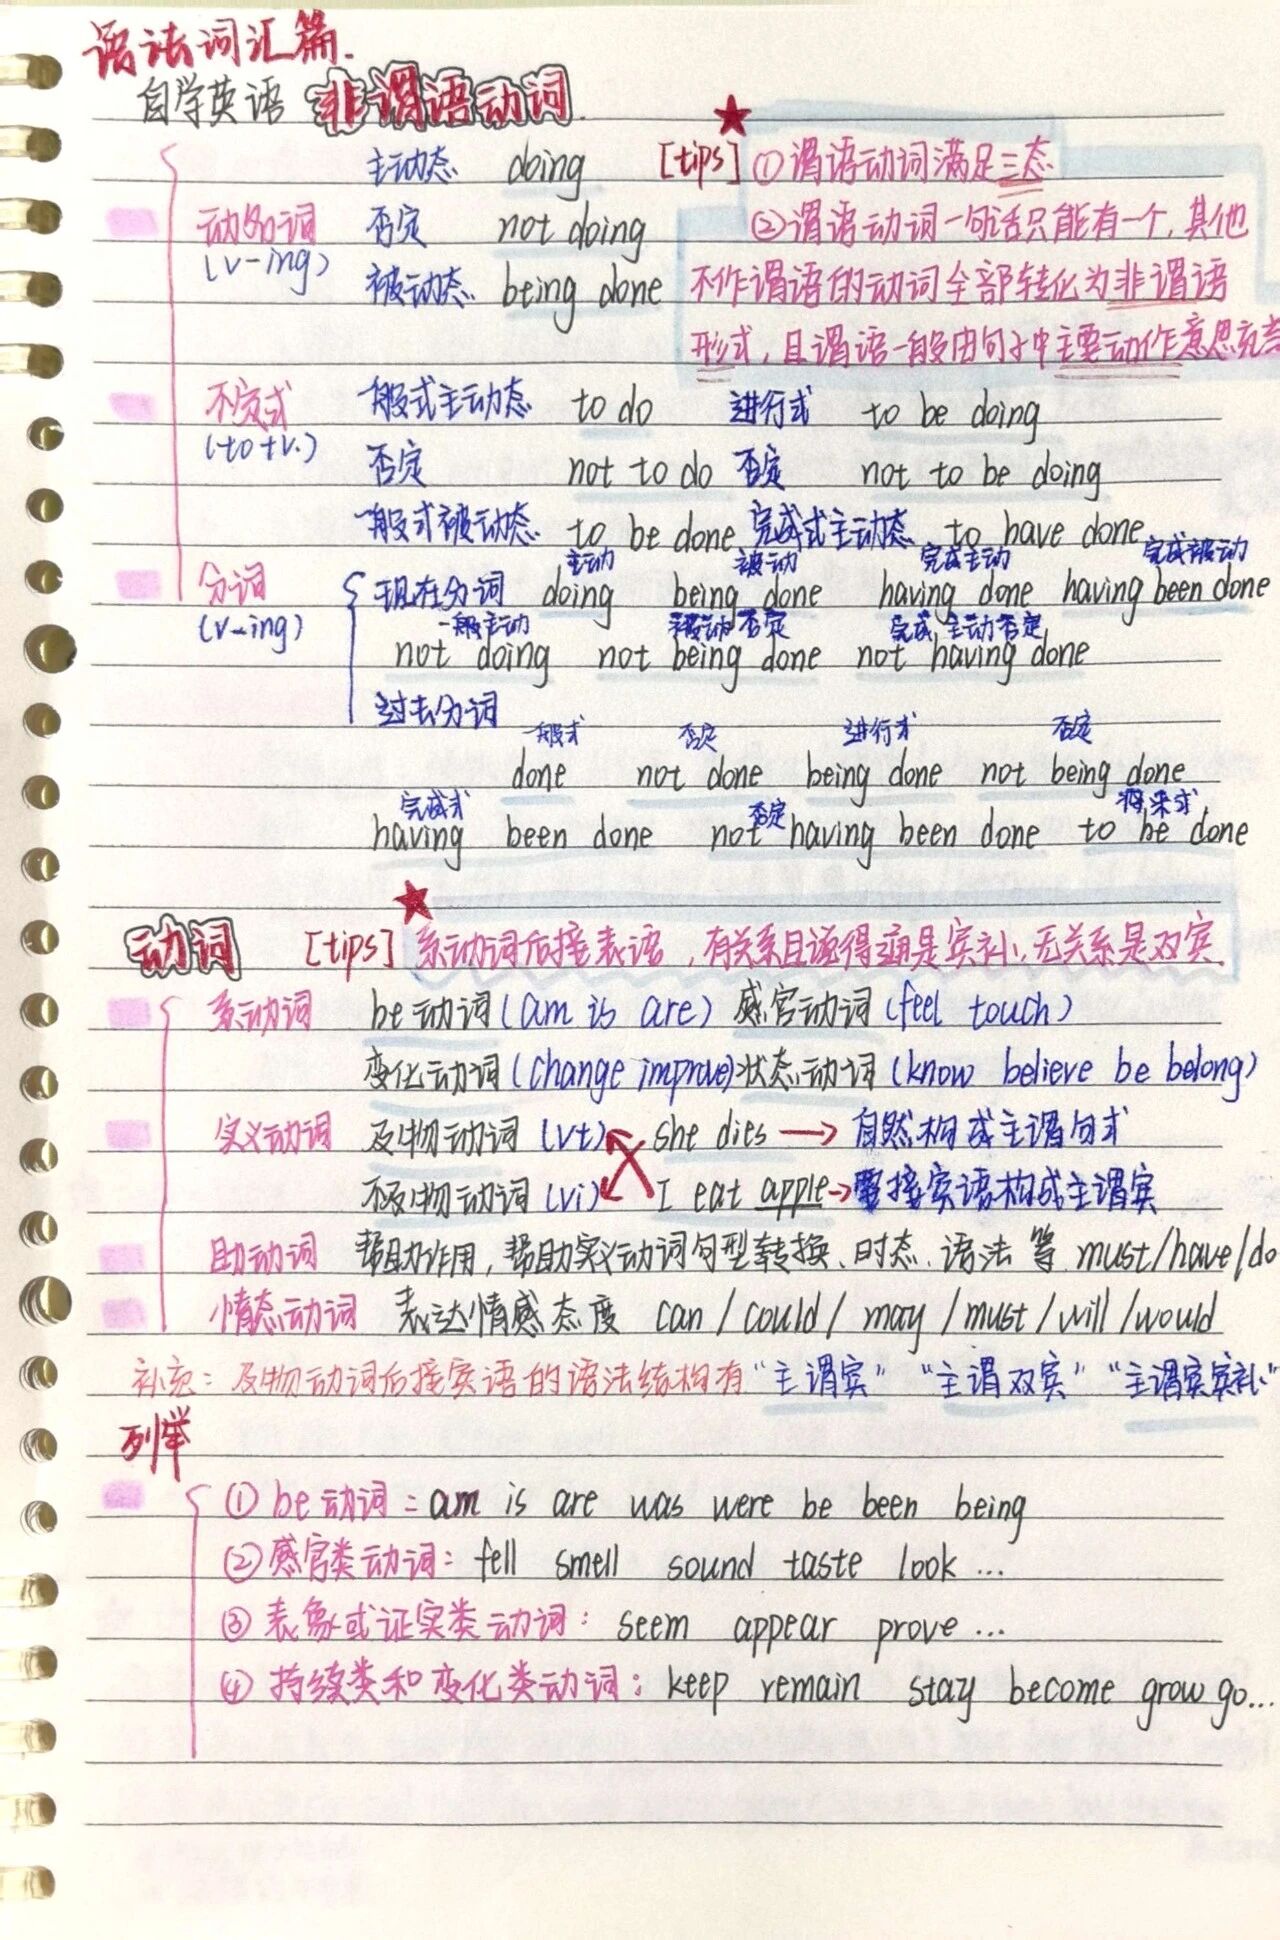 语法词汇篇.
自学英语 非谓语动词.
主动态 doing [tips] ①谓语动词满足三态
动名词 否定 not doing ②谓语动词一句话只能有一个,其他
(v-ing) 被动态 being done 不作谓语的动词全部转化为非谓语
形式,且谓语一般由句子中主要动作意思充当
不定式 一般式主动态 to do 进行式 to be doing
(to+v.) 否定 not to do 否定 not to be doing
一般式被动态 to be done 完成式主动态 to have done
主动 被动 完成主动 完成被动
分词 现在分词 doing being done having done having been done
(v-ing) 一般主动 被动否定 完成主动否定
not doing not being done not having done
过去分词
一般式 否定 进行式 否定
done not done being done not being done
完成式 否定 将来式
having been done not having been done to be done
动词 [tips] 系动词后接表语,有关系且读得通是宾补,无关系是双宾.
系动词 be动词(am is are) 感官动词(feel touch)
变化动词(change improve)状态动词(know believe be belong)
实义动词 及物动词(vt) she dies → 自然构成主谓句式
不及物动词(vi) I eat apple→接宾语构成主谓宾
助动词 帮助作用,帮助实义动词句型转换、时态、语法等 must/have/do
情态动词 表达情感态度 can/could/may/must/will/would
补充:及物动词后接宾语的语法结构有“主谓宾”“主谓双宾”“主谓宾宾补”
列举
①be动词:am is are was were be been being
②感官类动词:fell smell sound taste look...
③表象或证实类动词:seem appear prove...
④持续类和变化类动词:keep remain stay become grow go...